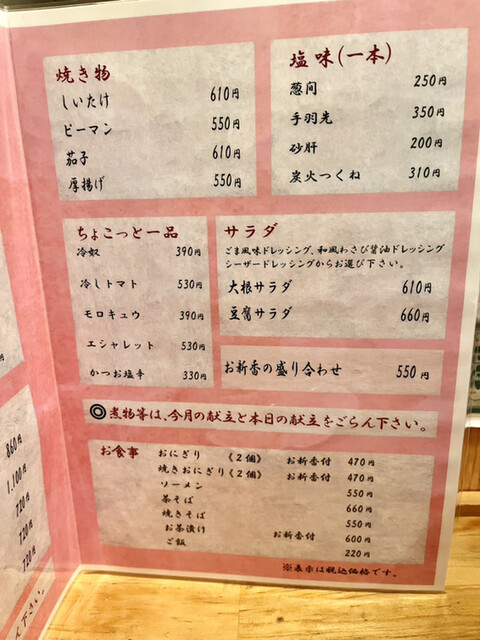 焼き物
しいたけ 610円
ピーマン 550円
茄子 610円
厚揚げ 550円
塩味(一本)
葱間 250円
手羽先 350円
砂肝 200円
炭火つくね 310円
ちょこっと一品
冷奴 390円
冷しトマト 530円
モロキュウ 390円
エシャレット 530円
かつお塩辛 330円
サラダ
ごま風味ドレッシング、和風わさび醤油ドレッシング
シーザードレッシングからお選び下さい。
大根サラダ 610円
豆腐サラダ 660円
お新香の盛り合わせ 550円
◎煮物等は、今月の献立と本日の献立をごらん下さい。
お食事
おにぎり 《2個》 お新香付 470円
焼きおにぎり《2個》 お新香付 470円
ソーメン 550円
茶そば 660円
焼きそば 550円
お茶漬け お新香付 600円
ご飯 220円
※表示は税込価格です。
860円
1,100円
720円
720円
720円
ん下さい。